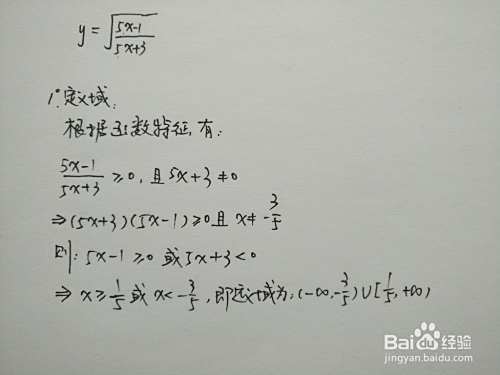 y = √((5x-1)/(5x+3))
1°. 定义域:
根据函数特征,有:
(5x-1)/(5x+3) ≥0, 且5x+3≠0
⇒(5x+3)(5x-1)≥0且x≠-3/5
则:5x-1≥0或5x+3<0
⇒ x≥1/5或x<-3/5, 即定义域为:(-∞,-3/5)∪[1/5,+∞)
Baidu经验
jingyan.baidu.com